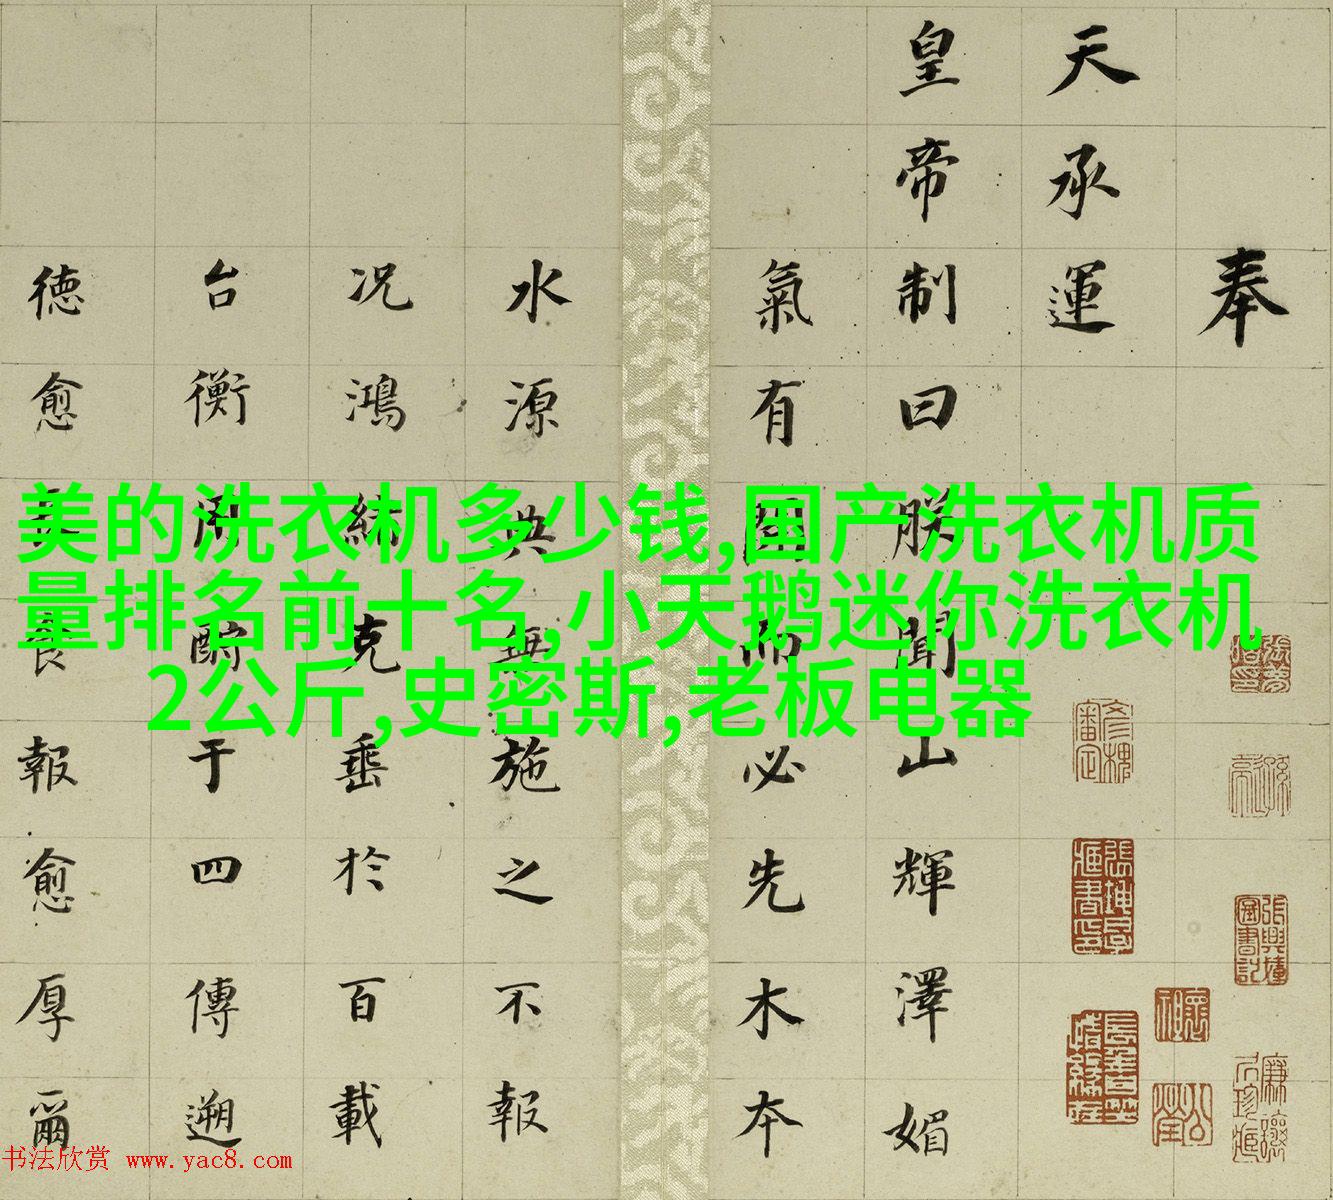 美的洗衣机多少钱,国产洗衣机质
量排名前十名,小天鹅迷你洗衣机
2公斤,史密斯,老板电器
奉
天承運
皇帝制曰朕聞山輝澤媚
氣有而必先木本
水源典無施之不報
况鴻克垂於百載
台衡于四傳遡
德愈食報愈厚爾
书法欣赏 www.yac8.com